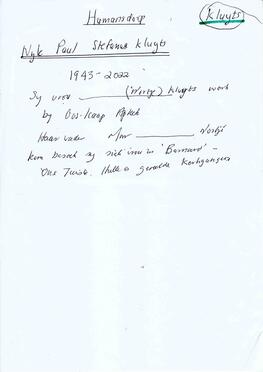 Humansdorp
Kluyts
Nyk Paul Stefanus Kluyts
1943-2022
Sy vrou __________ (Nortje) Kluyts werk
by Oos-Kaap
Haar vader Mnr __________ Nortjé
kom besoek sy in 'Barnard' -
Ons Tuiste. Hulle is gereelde kerkgangers